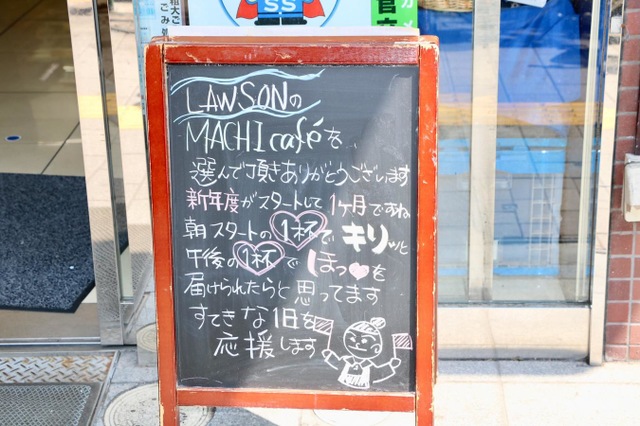 SS
LAWSONの
MACHI caféを
選んで頂きありがとうございます
新年度がスタートして1ヶ月ですね
朝スタートの1杯でキリッと
午後の1杯でほっ♥を
届けられたらと思ってます
すてきな1日を
応援します